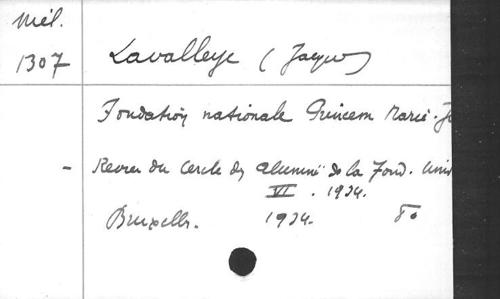 Mél.
1307
Lavalleye (Jacques)
Fondation nationale Princesse Marie-J
- Revue du Cercle des Alumni de la Fond. Univ
VI. 1934.
Bruxelles. 1934. 8o